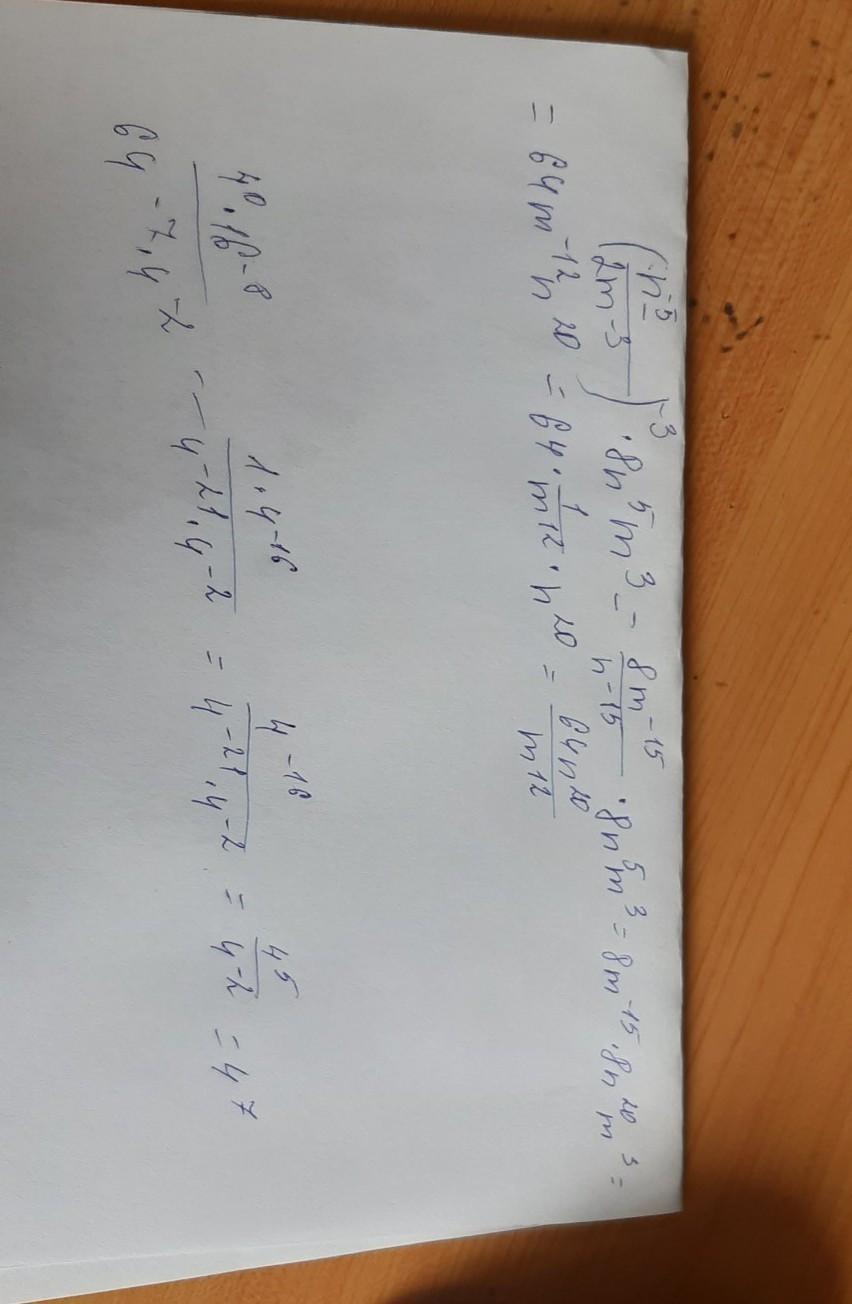 (n^-5/2m^-3)^-3 · 8n^5m^3 = 8m^-15/n^-15 · 8n^5m^3 = 8m^-15 · 8n^20 m^3 =
= 64m^-12 n^20 = 64 · 1/m^12 · n^20 = 64n^20/m^12
4^0 · 16^-8/64^-7 · 4^-2 = 1 · 4^-16/4^-21 · 4^-2 = 4^-16/4^-21 · 4^-2 = 4^5/4^-2 = 4^7